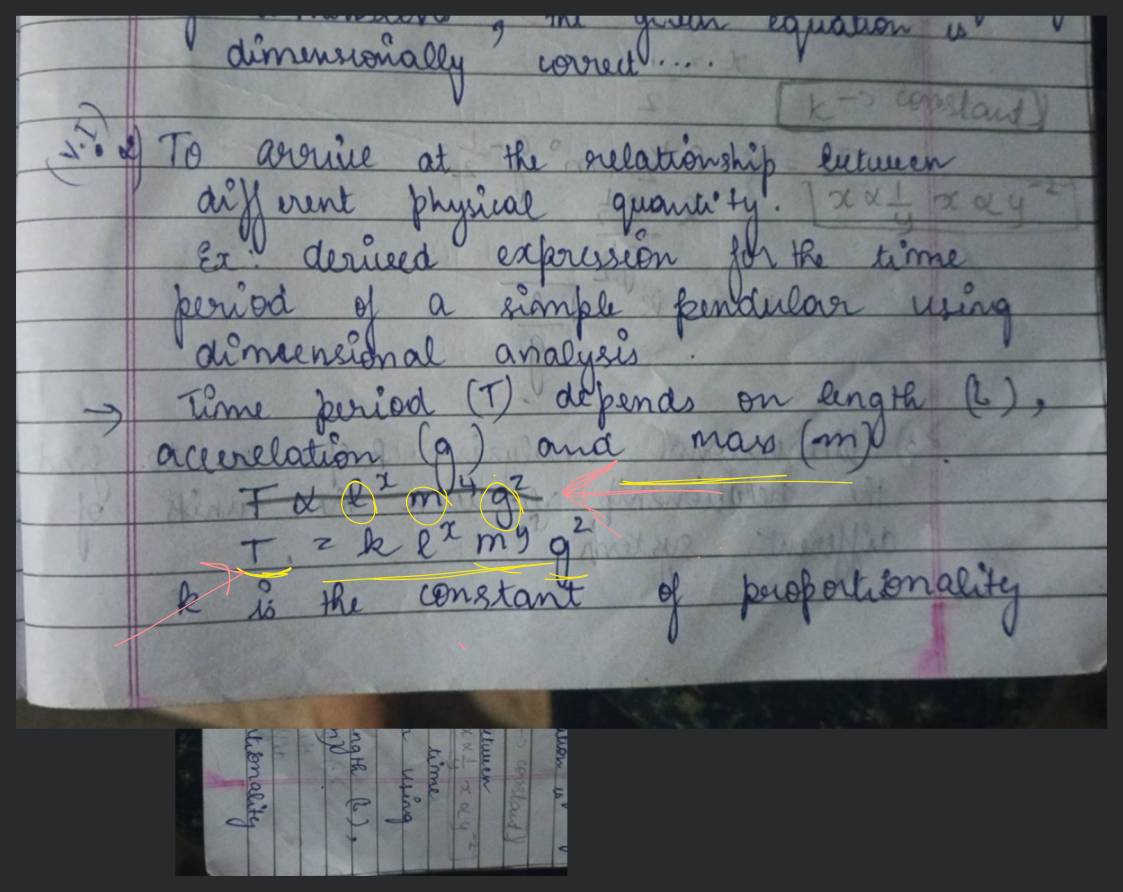 the given equation is
dimensionally correct....
k → constant
(V.I) 2) To arrive at the relationship between
different physical quantity. x ∝ 1/y x ∝ y⁻²
Ex: derived expression for the time
period of a simple pendular using
dimensional analysis.
→ Time period (T) depends on length (L),
accerelation (g) and mass (m).
T ∝ l^x m^y g^z
T = k l^x m^y g^z
k is the constant of proportionality
tionality
ngth (L),
using
time
etween
x ∝ 1/y x ∝ y⁻²
→ constant
ation is